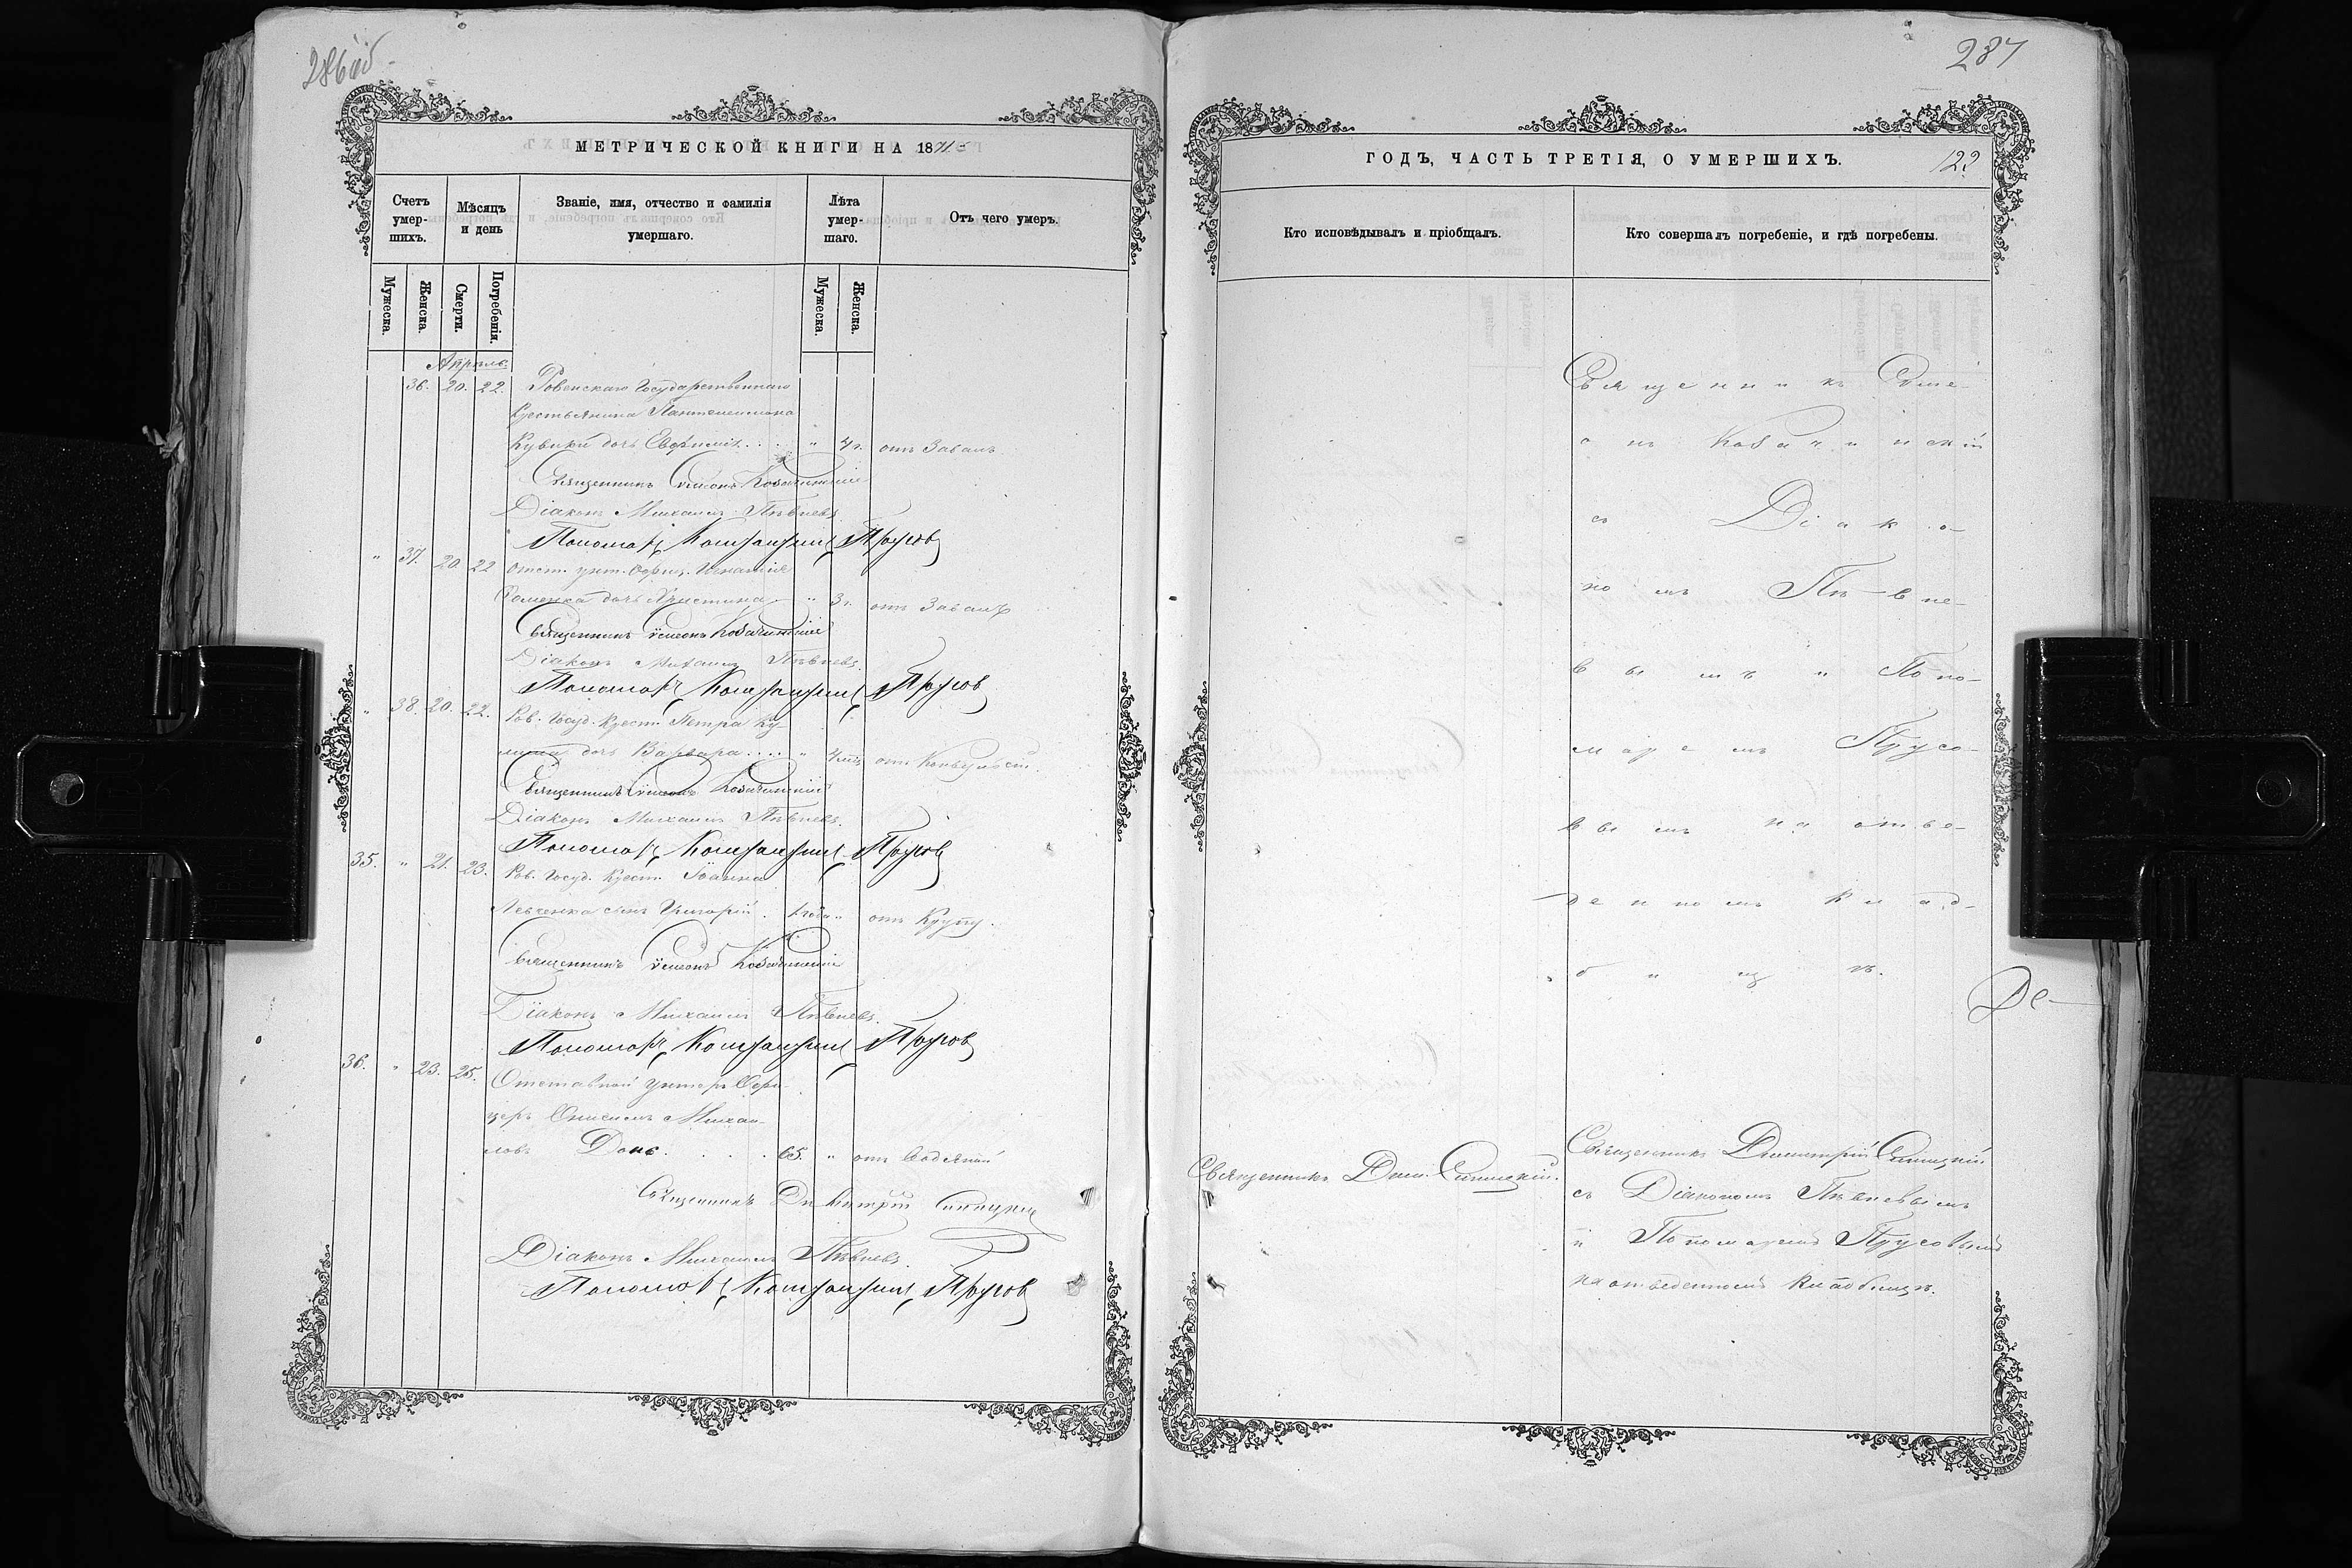 286об
МЕТРИЧЕСКОЙ КНИГИ НА 1871
Счетъ умер- шихъ.
Мѣсяцъ и день
Званіе, имя, отчество и фамилія умершаго.
Лѣта умер- шаго.
Отъ чего умеръ.
Мужеска.
Женска.
Смерти.
Погребенія.
Мужеска.
Женска.
Апрѣль
36. 20. 22. Ровенскаго Государственнаго
Крестьянина Пантелеимона
дочь Евфимія . . . " 4 г. отъ Завалъ
Священникъ Сѵмеонъ Кобачинскій
Діаконъ Михаилъ Пѣвневъ.
Пономарь Константинъ Прусовъ
" 37. 20. 22 отст. унт. офиц. Игнатія
дочь Христина. " 3 г. отъ Завалъ
Священникъ Сѵмеонъ Кобачинскій
Діаконъ Михаилъ Пѣвневъ.
Пономарь Константинъ Прусовъ
" 38. 20. 22. Ров. Госуд. Крест. Петра Ку-
дочь Варвара . . . . "
Священникъ Сѵмеонъ Кобачинскій
Діаконъ Михаилъ Пѣвневъ.
Пономарь Константинъ Прусовъ
35. " 21. 23. Ров. Госуд. Крест. Іоанна
Левченка сынъ Григорій . 1 года " отъ Крупу.
Священникъ Сѵмеонъ Кобачинскій
Діаконъ Михаилъ Пѣвневъ.
Пономарь Константинъ Прусовъ
36. " 23. 25. Отставной унтеръ Офи-
церъ Онисимъ Михаи-
ловъ . . . . 65. " отъ Водяной
Священникъ Димитрій Синицкій
Діаконъ Михаилъ Пѣвневъ.
Пономарь Константинъ Прусовъ
287
ГОДЪ, ЧАСТЬ ТРЕТІЯ, О УМЕРШИХЪ.
122
Кто исповѣдывалъ и пріобщалъ.
Кто совершалъ погребеніе, и гдѣ погребены.
Священникъ Сѵме-
онъ Кобачинскій
съ Діако-
номъ Пѣвне-
вымъ и Поно-
маремъ Прусо-
вымъ на отве-
денномъ клад-
бищѣ.
Де-
Священникъ Дим. Синицкій.
Священникъ Димитрій Синицкій
съ Діакономъ Пѣвневымъ
и Пономаремъ Прусовымъ
на отведенномъ кладбищѣ.